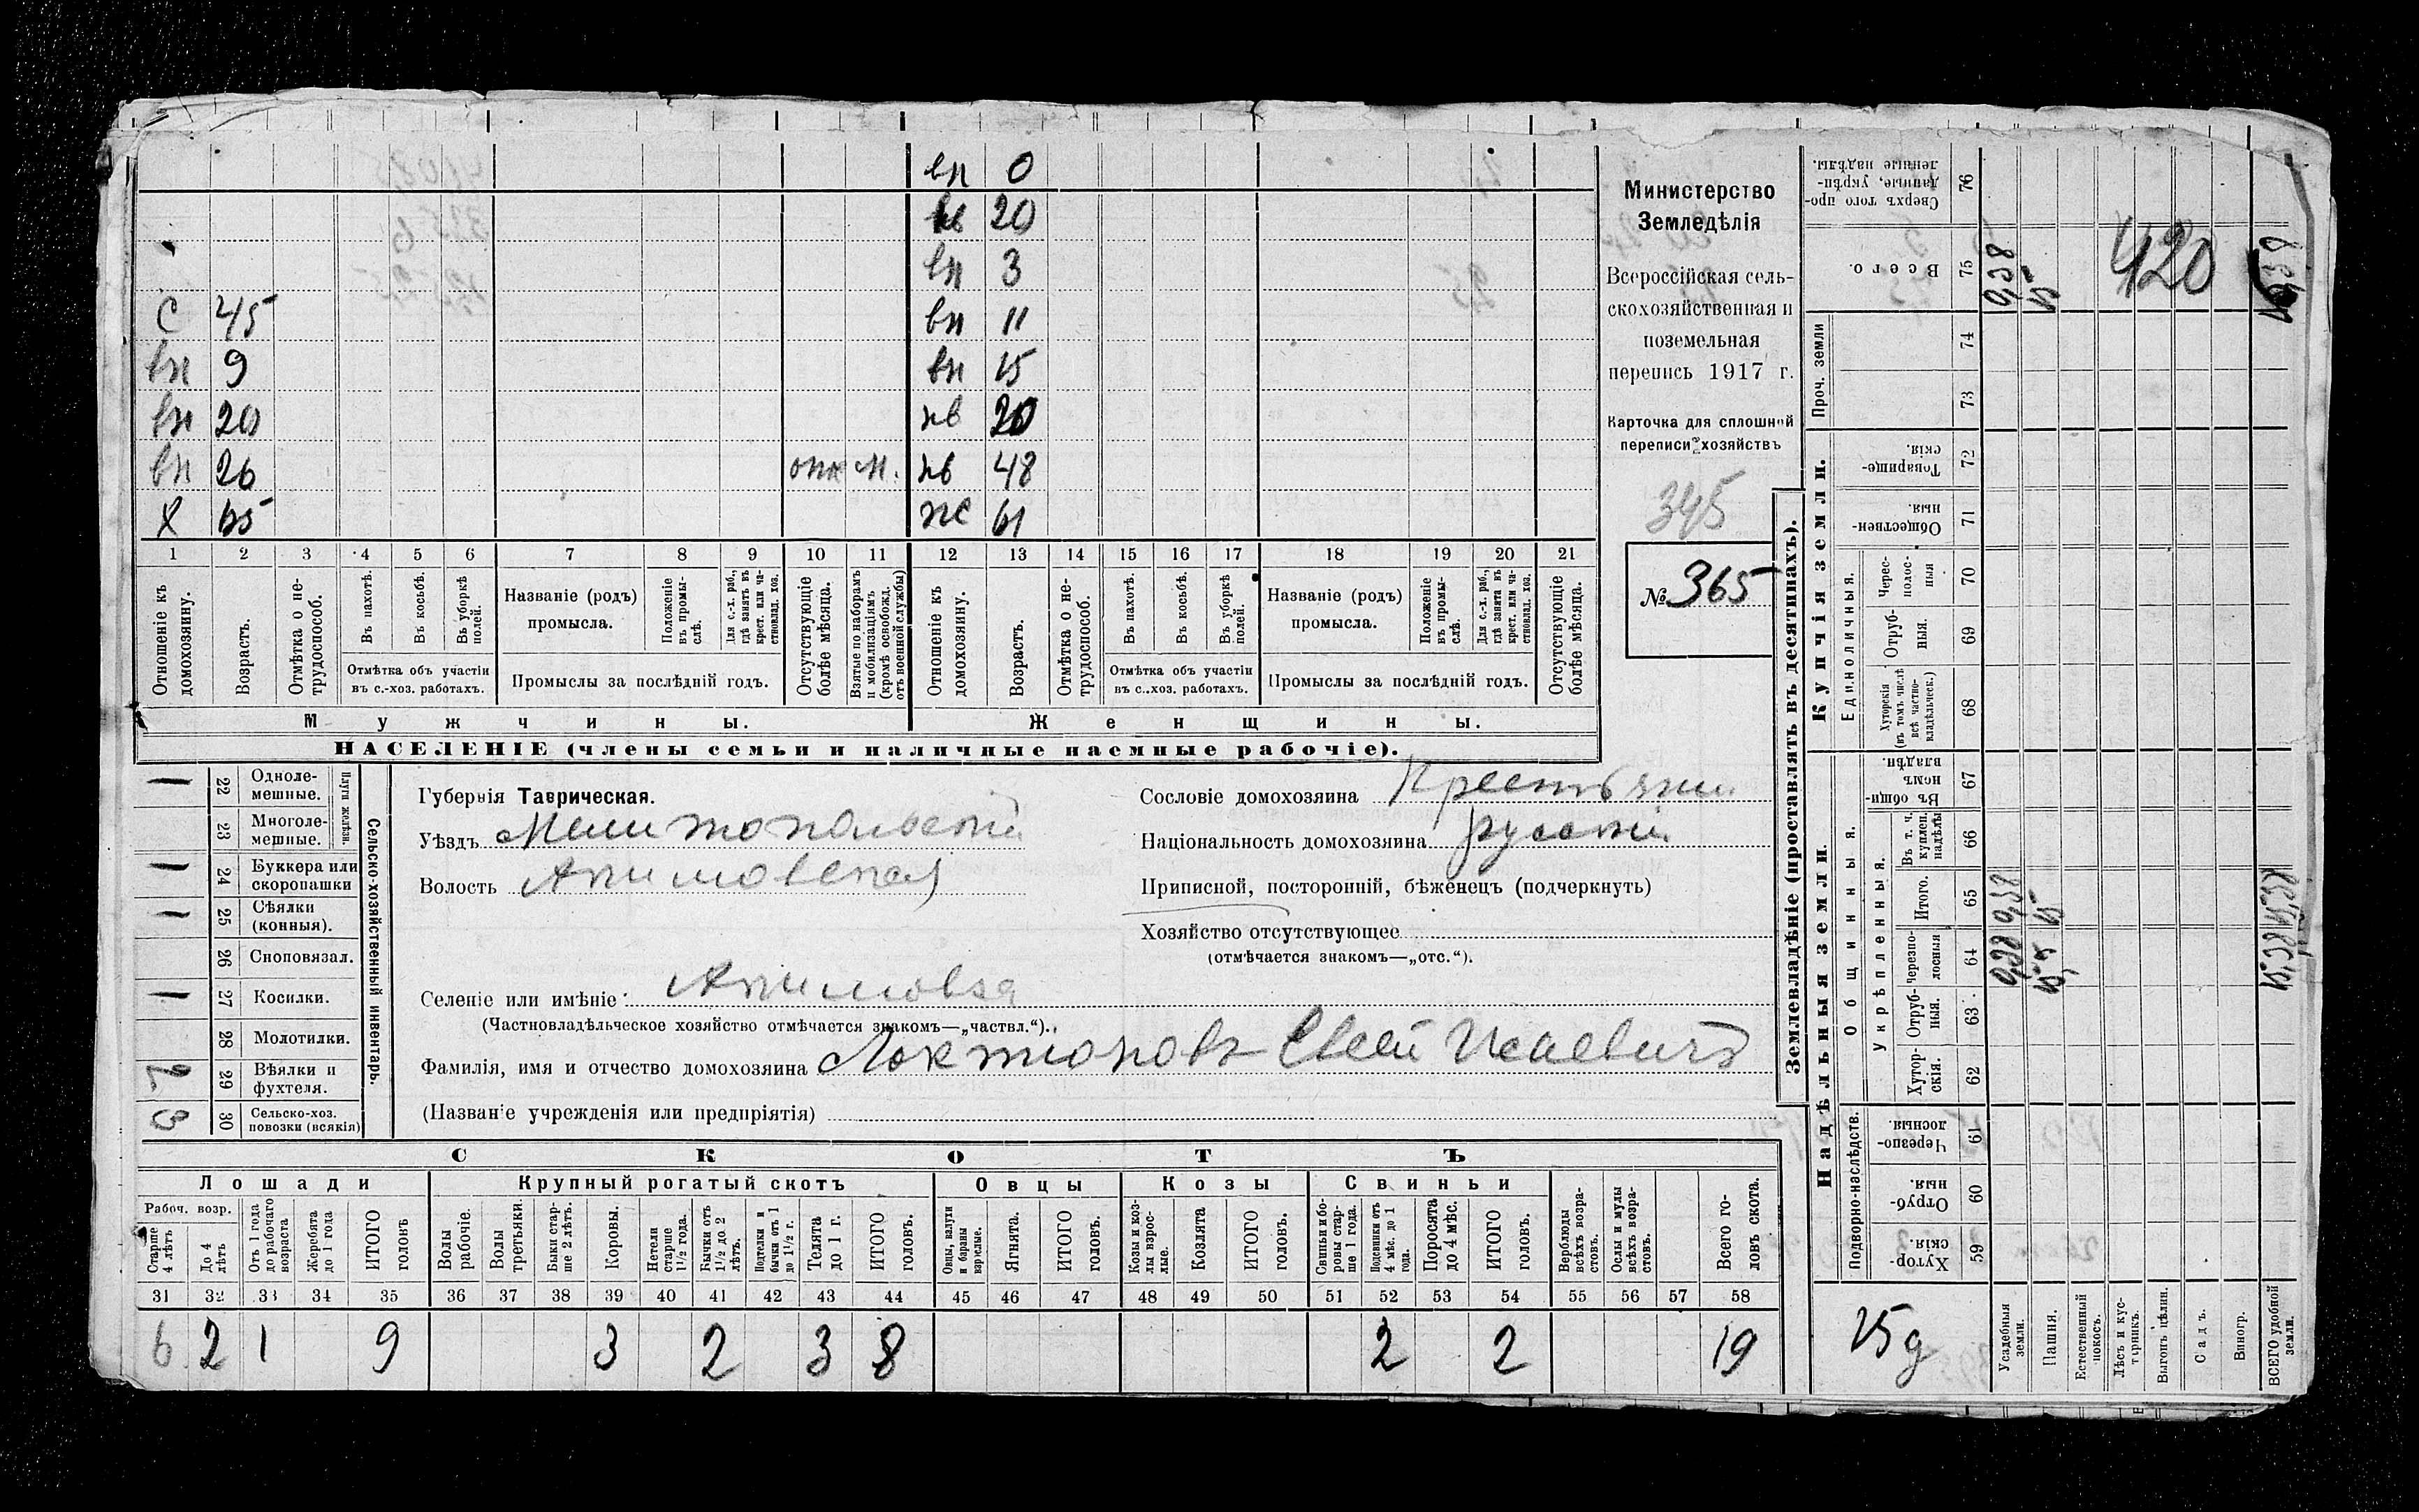 вн 0
нв 20
вн 3
С 45 вн 11
вн 9 вн 15
вн 20 нв 20
вн 26 нв 48
Х 65 же 61
1 2 3 4 5 6 7 8 9 10 11 12 13 14 15 16 17 18 19 20 21
Отношеніе къ домохозяину.
Возрастъ.
Отмѣтка о не-
трудоспособ.
Въ пахотѣ.
Въ косьбѣ.
Въ уборкѣ
полей.
Отмѣтка объ участіи
въ с.-хоз. работахъ.
Названіе (родъ)
промысла.
Положеніе
въ промы-
слѣ.
Для с.-х. раб.,
гдѣ занятъ въ
крест. или ча-
стновлад. хоз.
Промыслы за послѣдній годъ.
Отсутствующіе
болѣе мѣсяца.
Взятые по наборамъ
и мобилизаціямъ
(кромѣ освобожд.
отъ военной службы)
Отношеніе къ
домохозяину.
Возрастъ.
Отмѣтка о не-
трудоспособ.
Въ пахотѣ.
Въ косьбѣ.
Въ уборкѣ
полей.
Отмѣтка объ участіи
въ с.-хоз. работахъ.
Названіе (родъ)
промысла.
Положеніе
въ промы-
слѣ.
Для с.-х. раб.,
гдѣ занята въ
крест. или ча-
стновлад. хоз.
Промыслы за послѣдній годъ.
Отсутствующіе
болѣе мѣсяца.
Мужчины.
Женщины.
НАСЕЛЕНІЕ (члены семьи и наличные наемные рабочіе).
Министерство
Земледѣлія
Всероссійская сель-
скохозяйственная и
поземельная
перепись 1917 г.
Карточка для сплошной
переписи хозяйствъ
345
№ 365
1 22 Одноле-
мешные.
23 Многоле-
мешные.
Плуги желѣзн.
1 24 Буккера или
скоропашки
1 25 Сѣялки
(конныя).
26 Сноповязал.
1 27 Косилки.
28 Молотилки.
2 29 Вѣялки и
фухтеля.
3 30 Сельско-хоз.
повозки (всякія)
Сельско-хозяйственный инвентарь.
Губернія Таврическая.
Уѣздъ Мелитопольскій
Волость Акимовская
Сословіе домохозяина Крестьянин
Національность домохозяина русскій
Приписной, посторонній, бѣженецъ (подчеркнуть)
Хозяйство отсутствующее
(отмѣчается знакомъ—„отс.“).
Селеніе или имѣніе Акимовка
(Частновладѣльческое хозяйство отмѣчается знакомъ—„частвл.“).
Фамилія, имя и отчество домохозяина Локтионовъ Евсей Исаевичъ
(Названіе учрежденія или предпріятія)
СКОТЪ
Лошади Крупный рогатый скотъ Овцы Козы Свиньи
Рабоч. возр.
Старше
4 лѣтъ
До 4
лѣтъ
Отъ 1 года
до рабочаго
возраста
Жеребята
до 1 года
ИТОГО
головъ
Волы
рабочіе.
Волы
третьяки.
Быки стар-
ше 2 лѣтъ.
Коровы.
Нетели
старше
1½ года.
Бычки отъ
1½ до 2
лѣтъ.
Подтелки и
бычки отъ 1
до 1½ г.
Телята
до 1 г.
ИТОГО
головъ.
Овцы, валухи
и бараны
взрослые.
Ягнята.
ИТОГО
головъ.
Козы и коз-
лы взрос-
лые.
Козлята
ИТОГО
головъ.
Свиньи и бо-
ровы стар-
ше 1 года.
Подсвинки отъ
4 мѣс. до 1
года.
Поросята
до 4 мѣс.
ИТОГО
головъ.
Верблюды
всѣхъ возра-
стовъ.
Ослы и мулы
всѣхъ возра-
стовъ.
Всего го-
ловъ скота.
31 32 33 34 35 36 37 38 39 40 41 42 43 44 45 46 47 48 49 50 51 52 53 54 55 56 57 58
6 2 1 9 3 2 3 8 2 2 19
Землевладѣніе (проставлять въ десятинахъ).
Надѣльныя земли.
Купчія земли.
Проч. земли
Подворно-наслѣдств.
Общинныя.
Укрѣпленныя.
Единоличныя.
Хутор-
скія. 59
Отруб-
ныя. 60
Черезпо-
лосныя. 61
Хутор-
скія. 62
Отруб-
ныя. 63
Черезпо-
лосныя 64
Итого. 65
Въ т. ч.
куплен.
надѣлы 66
Въ общин-
номъ
владѣн. 67
Хуторскія
(въ томъ числѣ
всѣ частно-
владѣльческ.) 68
Отруб-
ныя. 69
Черес-
полос-
ныя 70
Обществен-
ныя. 71
Товарище-
скія. 72
73
74
Всего. 75
Сверхъ того про-
данные, укрѣп-
ленные надѣлы. 76
420
15 д
Усадебныя
земли.
Пашня.
Естественный
покосъ.
Лѣсъ и кус-
тарникъ.
Выгонъ цѣлин.
Садъ.
Виногр.
ВСЕГО удобной
земли.